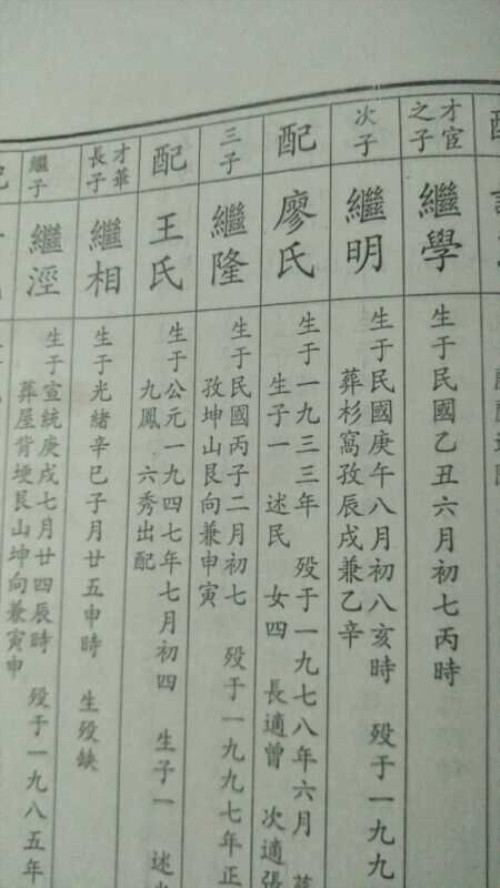 配
才宦
之子
繼學
生于民國乙丑六月初七丙時
次子
繼明
生于民國庚午八月初八亥時 殁于一九九
葬杉窩孜辰戌兼乙辛
配
廖氏
生于一九三三年 殁于一九七八年六月
生子一 述民 女四 長適曾 次適張
三子
繼隆
生于民國丙子二月初七 殁于一九九七年正
孜坤山艮向兼申寅
配
王氏
生于公元一九四七年七月初四 生子一 述
九鳳 六秀出配
才華
長子
繼相
生于光緒辛巳子月廿五申時 生殁缺
繼子
繼涇
生于宣統庚戌七月廿四辰時 殁于一九八五年
葬屋背埂艮山坤向兼寅申